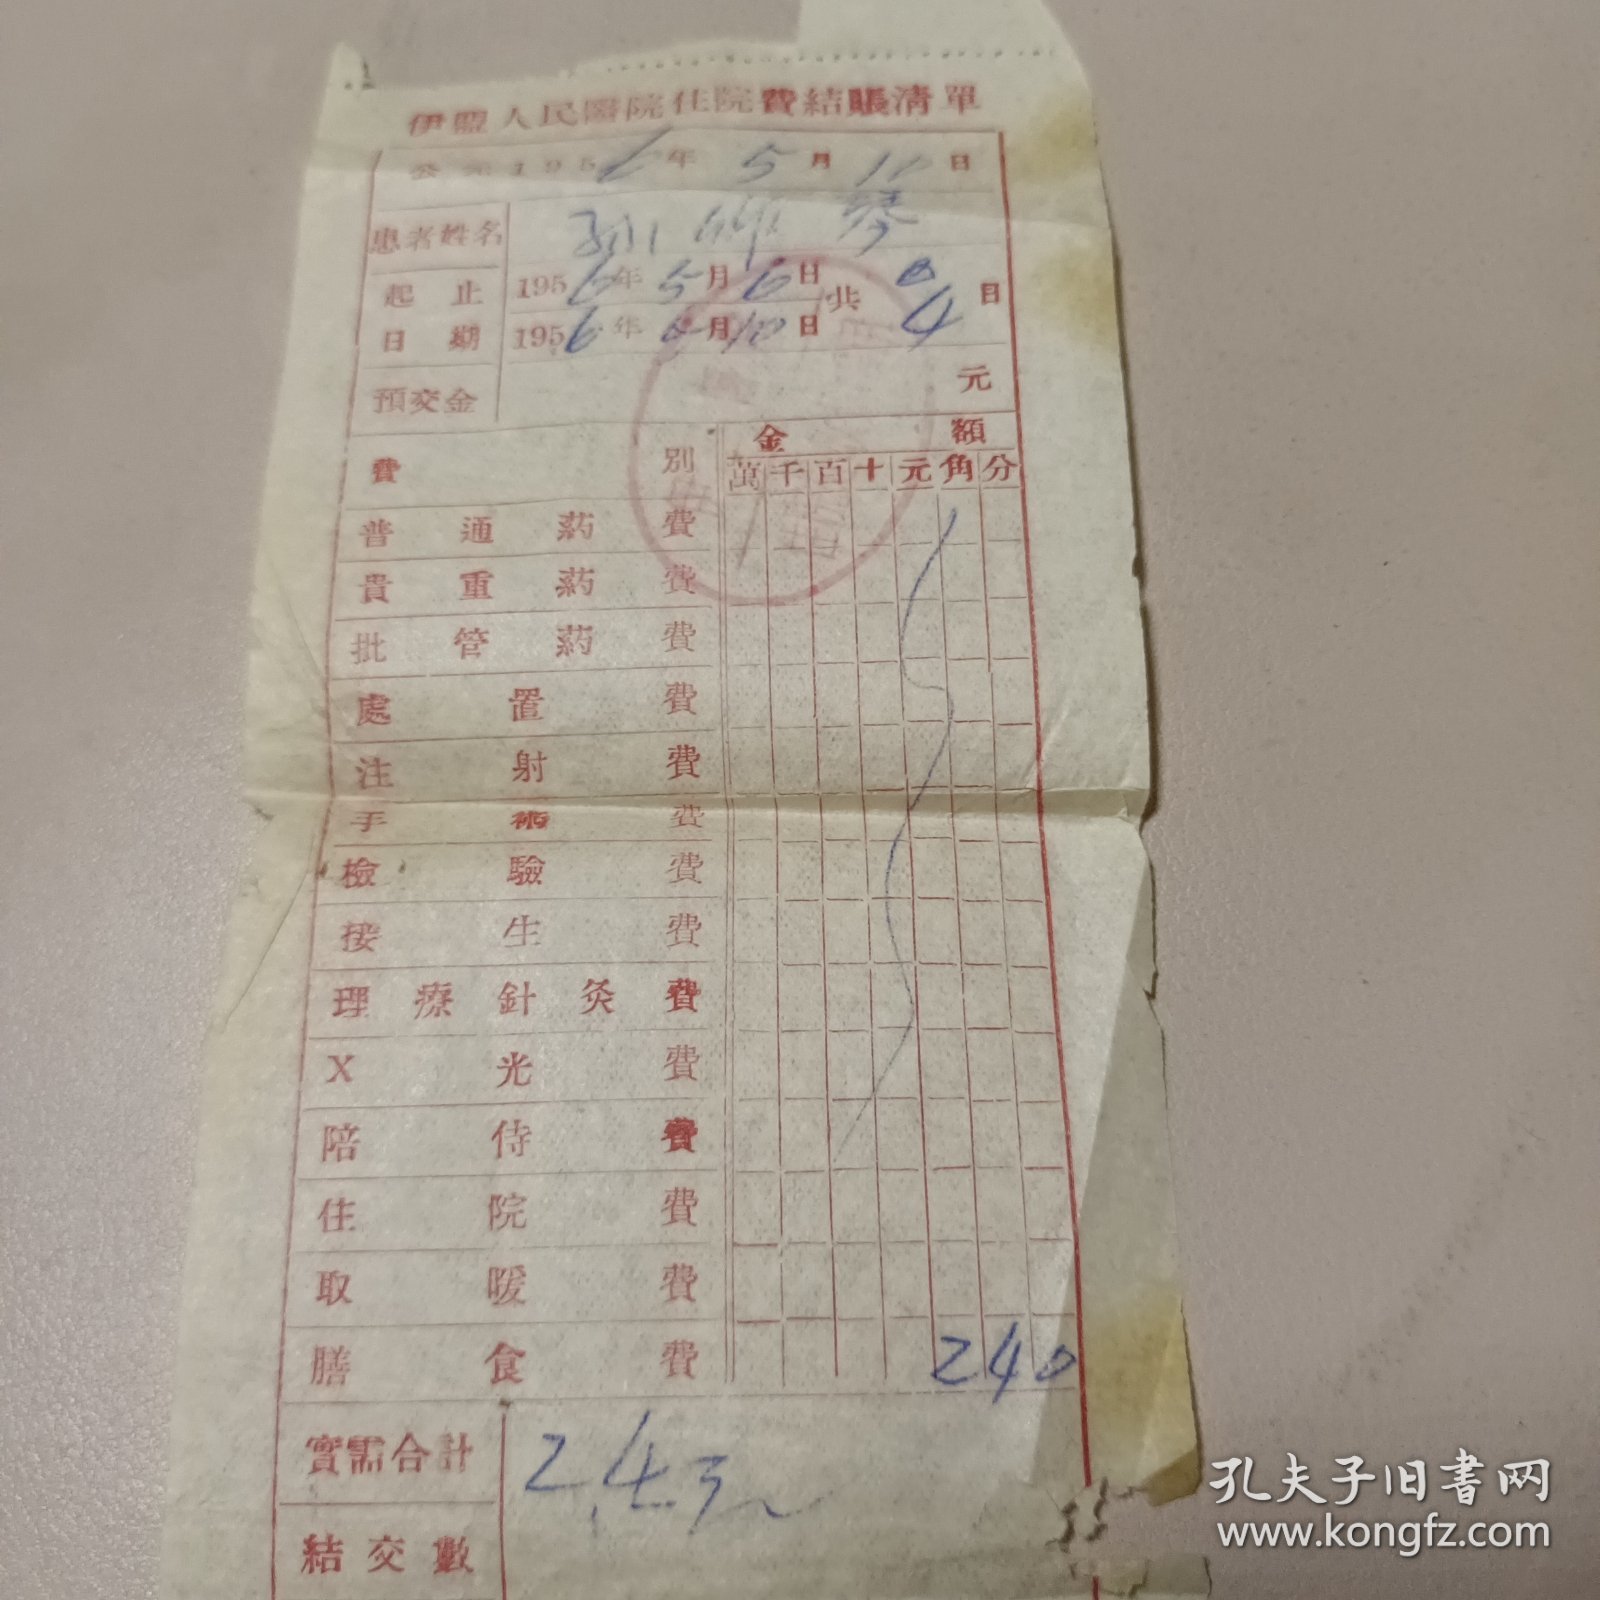 伊盟人民醫院住院費結賬清單
公元1956年5月10日
患者姓名
起止日期
1956年5月6日
1956年5月10日
共4日
預交金 元
費別 金額
萬千百十元角分
普通葯費
貴重葯費
批管葯費
處置費
注射費
手術費
檢驗費
接生費
理療針灸費
X光費
陪侍費
住院費
取暖費
膳食費 240
實需合計 2.4元
結交數
孔夫子旧書网
www.kongfz.com